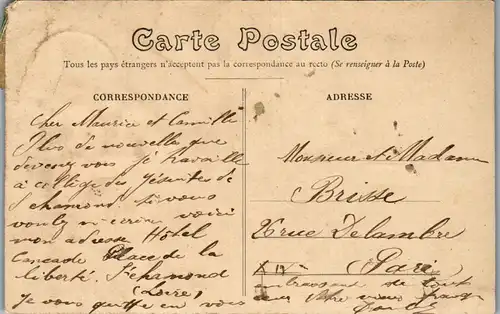 Carte Postale
Tous les pays étrangers n'acceptent pas la correspondance au recto (Se renseigner à la Poste)
CORRESPONDANCE
Cher Maurice et Camille
Plus de nouvelle que
devenez vous je travaille
a collège des Jésuites de
St chamond si vous
voulez m ecrire voici
mon adresse Hôtel
Cascade Place de la
liberté. St chamond
(Loire)
je vous quitte en vous
ADRESSE
Monsieur et Madame
Brisse
26 rue Delambre
Paris
embrassant de tout